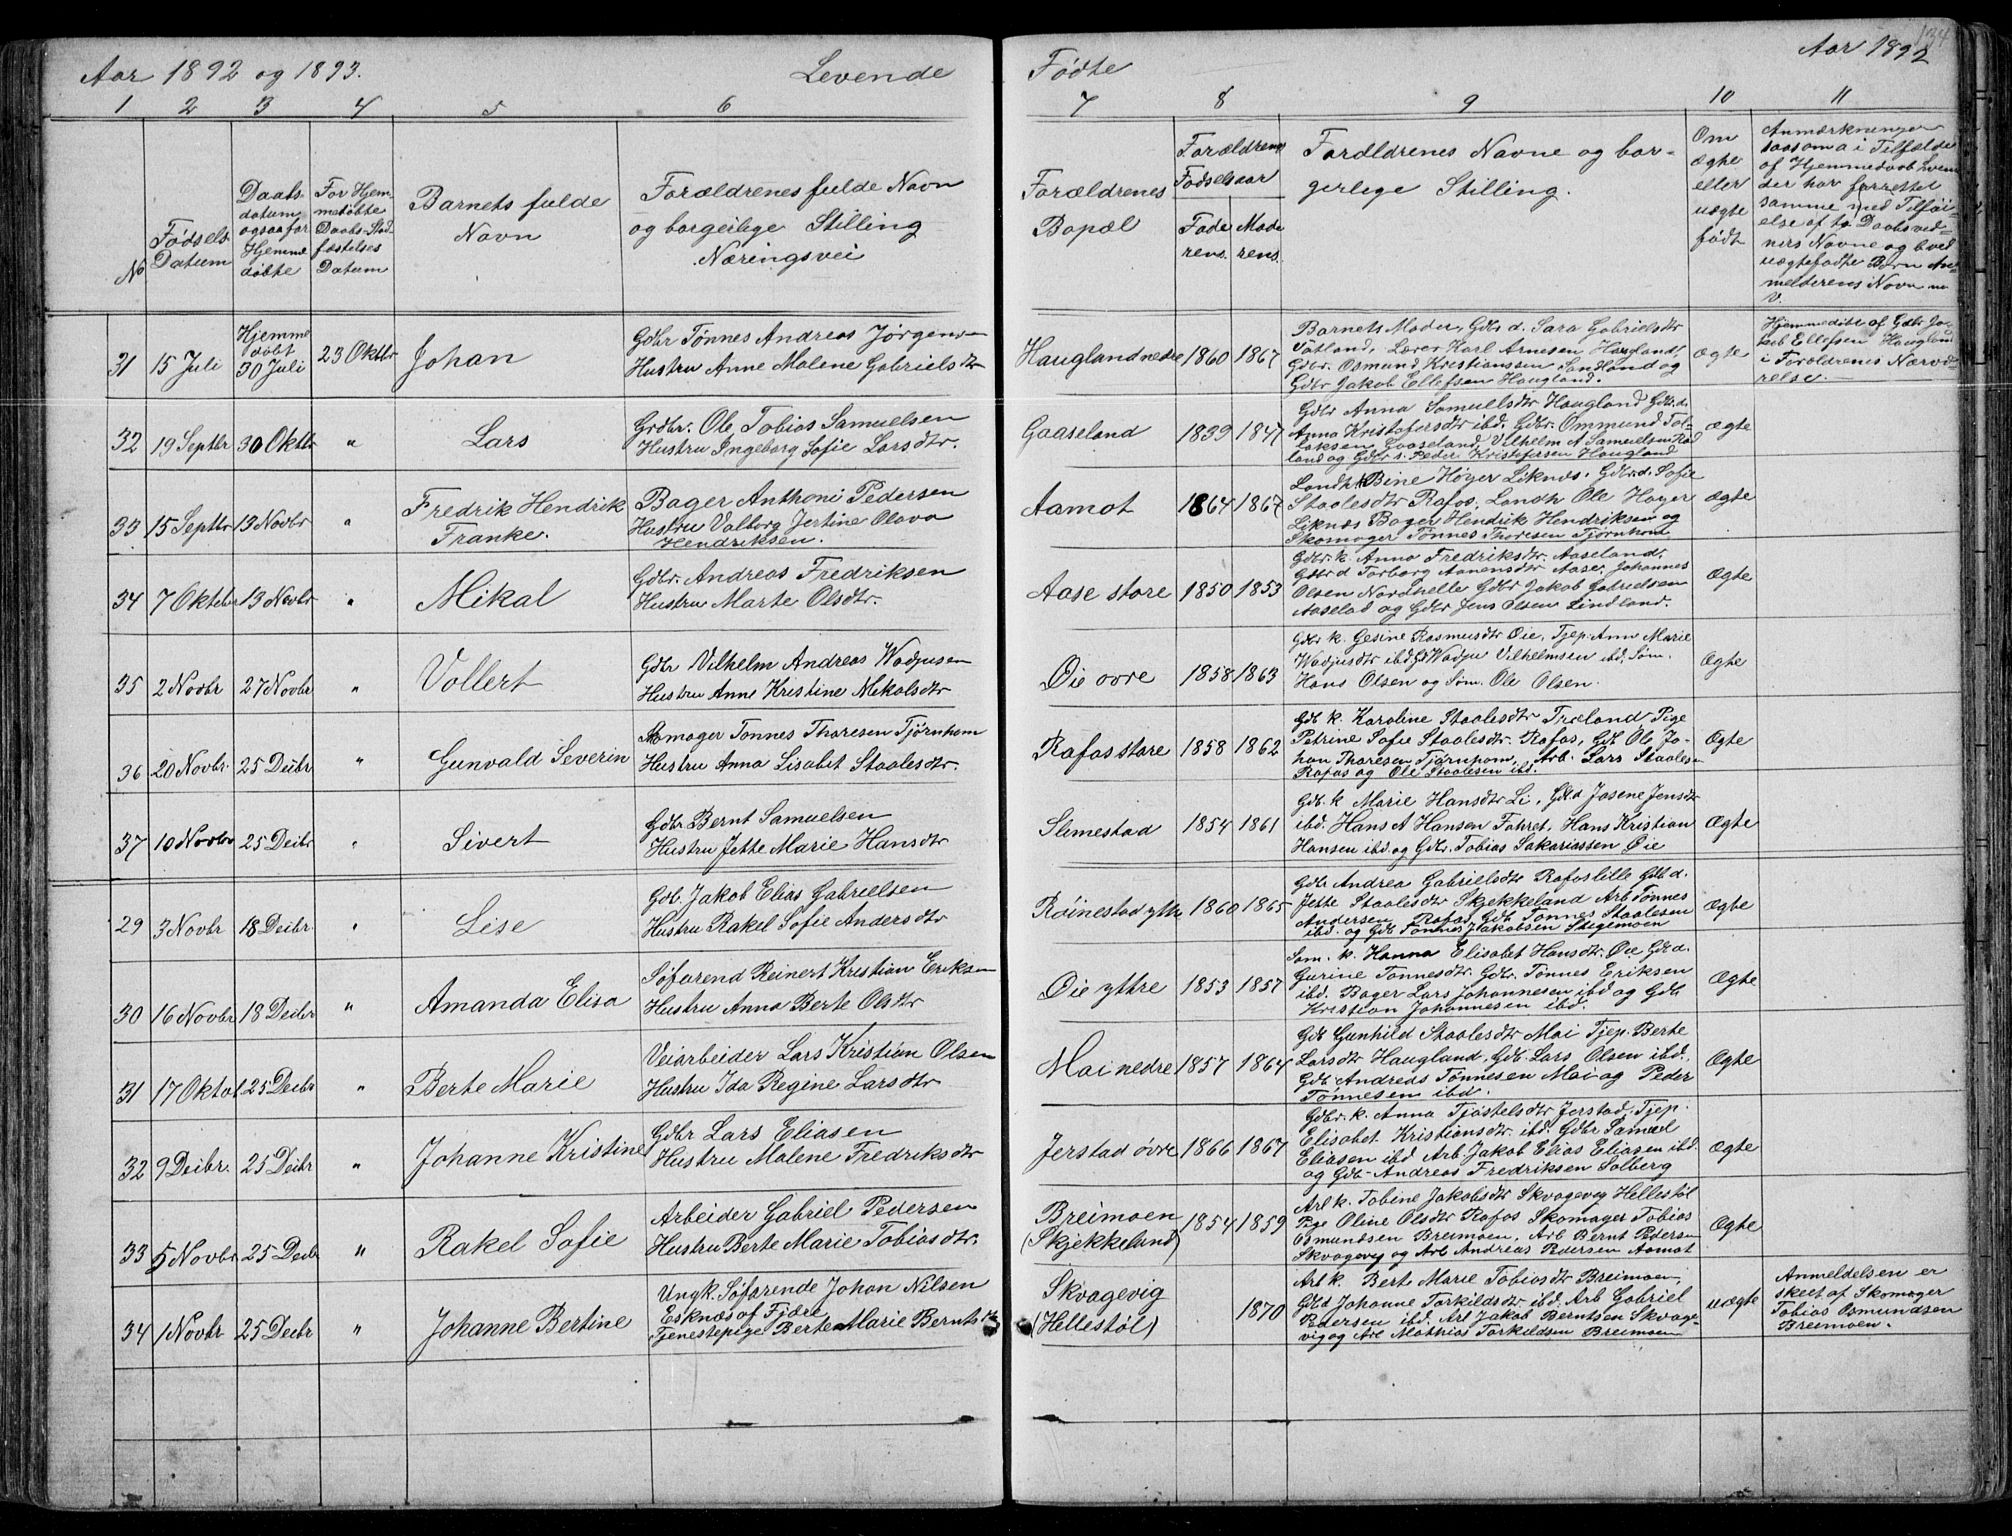 Aar 1892 og 1893. Levende Fødte Aar 1892
134
1 2 3 4 5 6 7 8 9 10 11
No
Fødsels
Datum
Daabs
datum
ogsaa for
Hjemme
døbte
For Hjem
medøbte
Daabs-Stad
fæstelses
Datum
Barnets fulde
Navn
Forældrenes fulde Navn
og borgerlige Stilling
Næringsvei
Forældrenes
Bopæl
Forældrenes
Fødselsaar
Fade
rens.
Mode
rens.
Forældrenes Navne og bor-
gerlige Stilling.
Om
ægte
eller
uægte
født
Anmærkninger
saasom a i Tilfælde
af Hjemmedaab hvem
der har forrettet
samme med Tilføi-
else af to Daabsvid-
ners Navne og b ved
uægtefødte Børn An-
melderens Navn m
v.
31 15 Juli Hjemme
døbt
30 Juli 23 Oktbr Johan
Gdbr Tønnes Andreas Jørgensen
Hustru Anne Malene Gabrielsdtr
Haugland nedre 1860 1867
Barnets Moder, Gdb d. Sara Gabrielsdtr
Vatland, Lærer Karl Arnesen Haugland,
Gdbr. Osmund Kristianssen Sandland og
Gdbr Jakob Ellefsen Haugland.
ægte
Hjemmedøbt af Gdbr Ja-
kob Ellefsen Haugland
i Forældrenes Nærvæ-
relse.
32 19 Septbr 30 Oktbr " Lars
Grdbr. Ole Tobias Samuelsen
Hustru Ingeborg Sofie Larsdtr.
Gaaseland 1839 1847
Gdbr Anna Samuelsdtr Haugland Gdb.d.
Anna Kristofersdtr ibd. Gdbr. Ommund Tol-
laksen Gaaseland, Vilhelm A Samuelsen Rød
land og Gdbr s. Peder Kristofersen Haugland
ægte
33 15 Septbr 13 Novbr " Fredrik Hendrik
Franke.
Bager Anthoni Pedersen
Hustru Valborg Jertine Olava
Hendriksen.
Aamot 1864 1867
Landh. k Bine Høyer Liknes. Gdbr.d. Sofie
Staalesdtr Rafos, Landh Ole Høyer
Liknes Bager Hendrik Hendriksen og
Skomager Tønnes Thoresen Tjørnhom
ægte
34 7 Oktober 13 Novbr " Mikal
Gdbr. Andreas Fredriksen
Hustru Marte Olsdtr.
Aase store 1850 1853
Gdbr. k. Anna Fredriksdtr. Aaseland,
Gdbr d Torborg Aanensdtr Aase, Johannes
Olsen Nordhelle Gdbr Jakob Gabrielsen
Aaselad og Gdbr Jens Olsen Lindland.
Ægte
35 2 Novbr 27 Novbr " Vollert
Gdbr Vilhelm Andreas Wadjusen
Hustru Anne Kristine Mikalsdtr
Øie øvre 1858 1863
Gdbr k. Gesine Rasmusdtr Øie, Tjep. Ann Marie
Wadjusdtr ibd. Gd Wadju Vilhelmsen ibd. Søm.
Hans Olsen og Søm. Ole Olsen.
Ægte
36 20 Novbr. 25 Deibr " Gunvald Severin
Skomager Tønnes Thoresen Tjørnhom
Hustru Anna Lisabet Staalesdtr.
Rafos store 1858 1862
Gdb k. Karoline Staalesdtr Træland Pige
Petrine Sofie Staalesdtr. Rafos, Gdb Ole Jo-
han Thoresen Tjørnhom, Arb. Lars Staalesn
Rafos og Ole Staalesen ibd.
Ægte
37 10 Novbr 25 Deibr " Sivert
Gdbr Bernt Samuelsen
Hustru Jette Marie Hansdtr
Slimestad 1854 1861
Gdb. k Marie Hansdtr Li, Gdb d Josene Jensdtr
ibd. Hans A Hansen Fahret, Hans Kristian
Hansen ibd. og Gdbr. Tobias Sakariassen Øie
Ægte
29 3 Novbr 18 Deibr. " Lise
Gdb. Jakob Elias Gabrielsen
Hustru Rakel Sofie Andersdtr
Røinestad ytre 1860 1865
Gdbr Andrea Gabrielsdtr Rafoslille Gdb d.
Jette Staalesdtr Skjekkeland Arb Tønnes
Andersen Rafos, Gdb Tønnes Staalesen
ibd. og Gdb Tønnes Jakobsen Stigemoen
Ægte
30 16 Novbr 18 Deibr " Amanda Elisa
Søfarend Reinert Kristian Eriksen
Hustru Anna Berte Olsdtr
Øie ytre 1853 1857
Søm. k. Hanna Elisabet Hansdtr. Øie Gdb d.
Gurine Tønnesdtr. Gdbr. Tønnes Eriksen
ibd. Bager Lars Johannesen ibd og Gdb
Kristian Johannesen ibd.
Ægte
31 17 Oktob 25 Deibr " Berte Marie
Veiarbeider Lars Kristian Olsen
Hustru Ida Regine Larsdtr
Moi nedre 1857 1864
Gdb Gunhild Staalesdtr Moi Tjep. Berte
Larsdtr Haugland, Gdb. Lars Olsen ibd.
Gdb. Andreas Tønnesen Moi og Peder
Tønnesen ibd.
Ægte
32 9 Deibr. 25 Deibr " Johanne Kristine
Gdbr Lars Eliasen
Hustru Malene Fredriksdtr
Jerstad øvre 1866 1867
Gdbr. k. Anna Tjøstelsdtr Jerstad, Tjep.
Elisabet Kristiansdtr. ibd. Gdbr Samuel
Eliasen ibd Arb. Jakob Elias Eliasen ibd.
og Gdb. Andreas Fredriksen Solberg
Ægte
33 5 Novbr 25 Deibr " Rakel Sofie
Arbeider Gabriel Pedersen
Hustru Berte Marie Tobiasdtr.
Breimoen
(Skjekkeland) 1854 1859
Arb k. Tobine Jakobsdtr Skvagevig Hellestøl
Pige Oline Olsdtr Rafos Skomager Tobias
Osmundsen Breimoen, Arb Bernt Pedersen
Skvagevig og Arb Andreas Pedersen Aamot
Ægte
34 1 Novbr 25 Deibr " Johanne Bertine
Ungk. Søfarende Johan Nilsen
Esknæs af Fjære
Tjenestepige Berte Marie Berntsdtr
Skvagevig
(Hellestøl) 1870
Arb k. Berte Marie Tobiasdtr Breimoen,
Gdb d Johanne Torkildsdtr ibd. Arb Gabriel
Pedersen ibd. Arb Jakob Berntsen Skvage-
vig og Arb Mathias Torkildsen Breimoen
uægte
Anmeldelsen er
skeet af Skomager
Tobias Osmundsen
Breimoen.